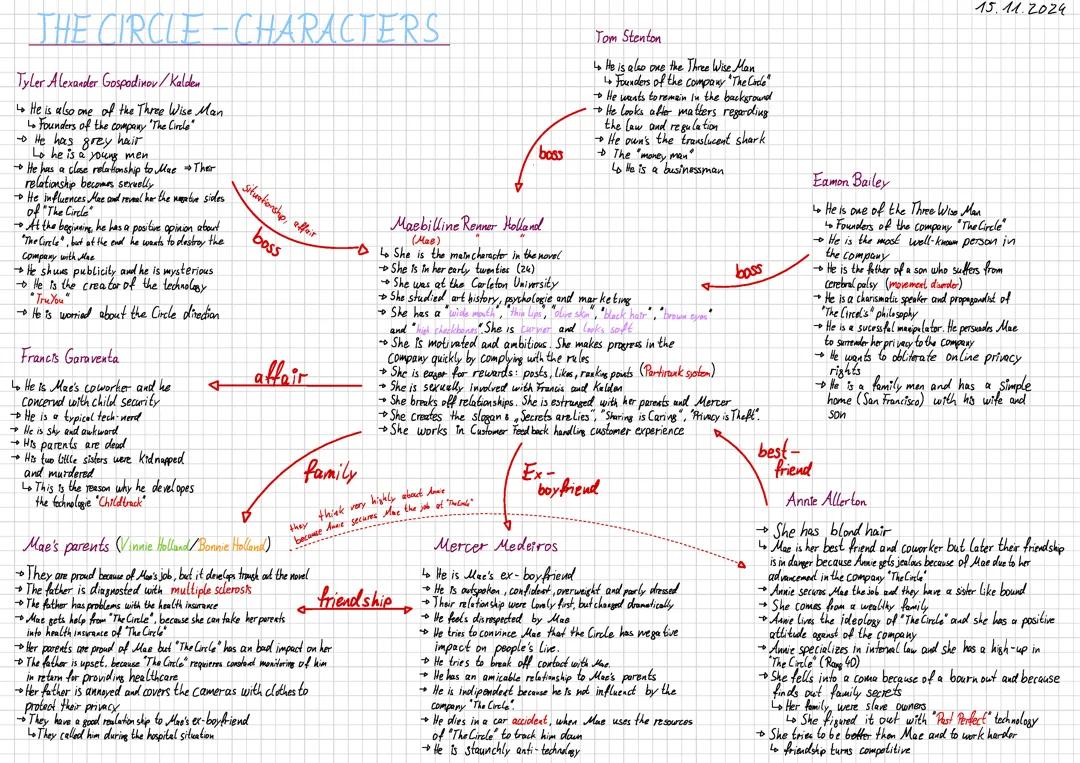 15.11.2024
THE CIRCLE - CHARACTERS
Tom Stenton
↳ He is also one the Three Wise Man
↳ Founders of the company "The Circle"
→ He wants to remain in the background
→ He looks after matters regarding
the law and regulation
→ He own's the translucent shark
→ The "money man"
↳ He is a businessman
boss
Tyler Alexander Gospodinov / Kalden
↳ He is also one of the Three Wise Man
↳ Founders of the company "The Circle"
→ He has grey hair
↳ he is a young men
→ He has a close relationship to Mae ⇒ Their
relationship becomes sexuelly
→ He influences Mae and reveal her the negative sides
of "The Circle"
→ At the beginning, he has a positive opinion about
"The Circle", but at the end he wants to destroy the
company with Mae
→ He shuns publicity and he is mysterious
→ He is the creator of the technology
"TruYou"
→ He is worried about the Circle direction
situationship, affair
boss
Eamon Bailey
↳ He is one of the Three Wise Man
↳ Founders of the company "The Circle"
→ He is the most well-known person in
the company
→ He is the father of a son who suffers from
cerebral palsy (movement disorder)
→ He is a charismatic speaker and propagandist of
"The Circle's" philosophy
→ He is a sucessful manipulator. He persuades Mae
to surrender her privacy to the company
→ He wants to obliterate online privacy
rights
→ He is a family men and has a simple
home (San Francisco) with his wife and
son
boss
Maebilline Renner Holland
(Mae)
↳ She is the main character in the novel
→ She is in her early twenties (24)
→ She was at the Carleton University
→ She studied art history, psychologie and marketing
→ She has a "wide mouth", "thin lips", "olive skin", "black hair", "brown eyes"
and "high cheekbones" She is curvier and looks soft
→ She is motivated and ambitious. She makes progress in the
company quickly by complying with the rules
→ She is eager for rewards: posts, likes, ranking points (Partirank system)
→ She is sexually involved with Francis and Kalden
→ She breaks off relationships. She is estranged with her parents and Mercer
→ She creates the slogans „Secrets are lies", "Sharing is Caring", "Privacy is Theft".
→ She works in Customer Feedback handling customer experience
Francis Garaventa
↳ He is Mae's coworker and he
concerned with child security
→ He is a typical tech-nerd
→ He is shy and awkward
→ His parents are dead
→ His two little sisters were kidnapped
and murdered
↳ This is the reason why he developes
the technologie "Childtrack"
affair
family
Ex-
boyfriend
best-
friend
they think very highly about Annie
because Annie secures Mae the job at "The Circle"
Mae's parents (Vinnie Holland/Bonnie Holland)
→ They are proud because of Mae's job, but it develops trough out the novel
→ The father is diagnosted with multiple sclerosis
→ The father has problems with the health insurance
→ Mae gets help from "The Circle", because she can take her parents
into health insurance of "The Circle"
→ Her parents are proud of Mae but "The Circle" has an bad impact on her
→ The father is upset, because "The Circle" requieres constand monitoring of him
in return for providing healthcare
→ Her father is annoyed and covers the cameras with clothes to
protect their privacy
→ They have a good realationship to Mae's ex-boyfriend
↳ They called him during the hospital situation
friendship
Mercer Medeiros
↳ He is Mae's ex-boyfriend
→ He is outspoken, confident, overweight and poorly dressed
→ Their relationship were lovely first, but changed dramatically
→ He feels disrespected by Mae
→ He tries to convince Mae that the Circle has negative
impact on people's live.
→ He tries to break off contact with Mae.
→ He has an amicable relationship to Mae's parents
→ He is independent because he is not influence by the
company "The Circle".
→ He dies in a car accident, when Mae uses the resources
of "The Circle" to track him down
→ He is staunchly anti-technology
Annie Allerton
→ She has blond hair
↳ Mae is her best friend and coworker but later their friendship
is in danger because Annie gets jealous because of Mae due to her
advancement in the company "The Circle"
→ Annie secures Mae the job and they have a sister like bound
→ She comes from a wealthy family
→ Annie lives the ideology of "The Circle" and she has a positive
attitude against of the company
→ Annie specializes in internal law and she has a high-up in
"The Circle" (Rang 40)
→ She fells into a coma because of a bourn out and because
finds out family secrets
↳ Her family were slave owners
↳ She figured it out with "Past Perfect" technology
→ She tries to be better then Mae and to work harder
↳ friendship turns competitive